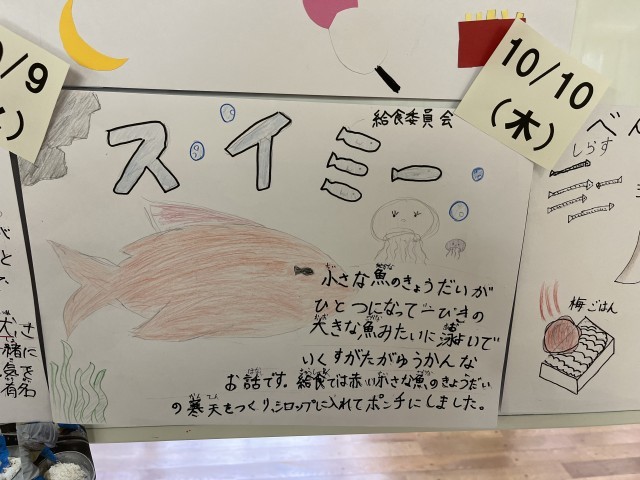 0/9
10/10
(木)
給食委員会
スイミー
小さな魚のきょうだいが
ひとつになって一ぴきの
大きな魚みたいに泳いで
いくすがたがゆうかんな
お話です。給食では赤い小さな魚のきょうだい
の寒天をつくり、シロップに入れてポンチにしました。
しらす
梅ごはん